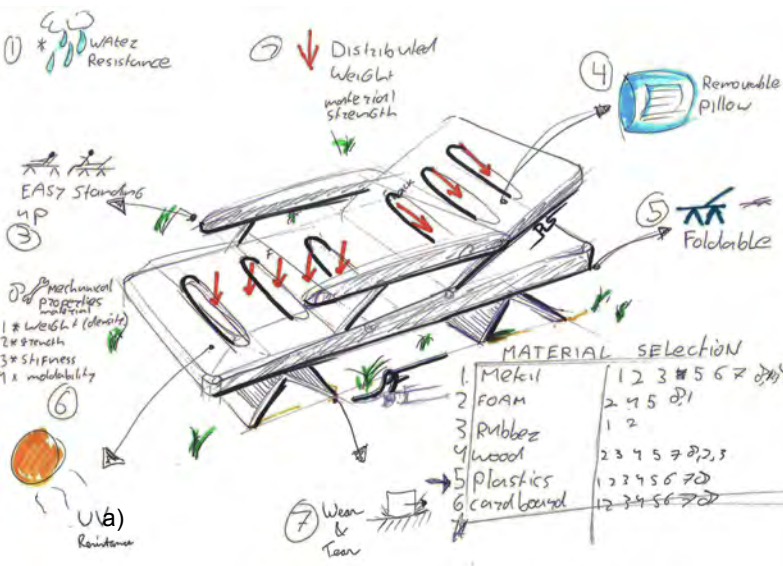 1
* Water
Resistance
2
Distributed
Weight
material
strength
4
Removable
pillow
EASY Standing
up
3
5
Foldable
mechanical
properties
material
1 * Weight (density)
2 * strength
3 * Stifness
4 * moldability
6
UV
a)
Resistance
7 Wear
&
Tear
MATERIAL SELECTION
1. Metal 1 2 3 5 6 7
2 FOAM 2 4 5 8,1
3 Rubber 1 2
4 wood 2 3 4 5 7 8,2,3
5 plastics 1 2 3 4 5 6 7 8
6 cardboard 12 3 4 5 6 7 8